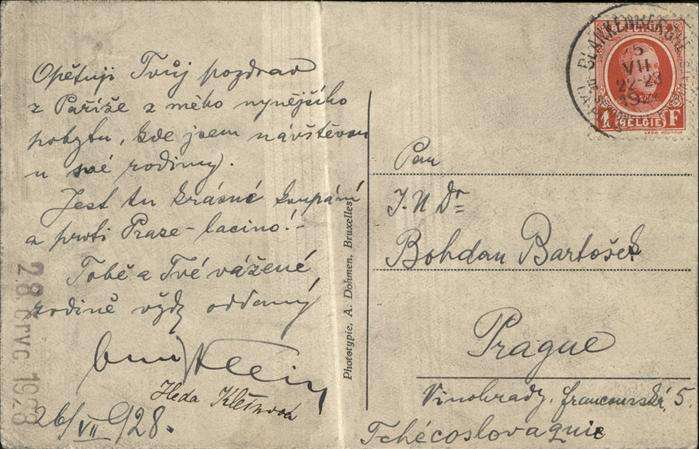 Opětuji Tvůj pozdrav
z Paříže z mého nynějšího
pobytu, kde jsem návštěvou
u své rodiny.
Jest tu krásné koupání
a proti Praze - lacino! -
Tobě a Tvé vážené
rodině vždy oddaný
Heda
26/VII 928.
28. črvc. 1928
Phototypie, A. Dohmen, Bruxelles
BLANKENBERGHE
VII
22-23
1 F
BELGIE
Pan
J. U. Dr
Bohdan Bartošek
Prague
Vinohrady, francouzská, 5
Tchécoslovaquie